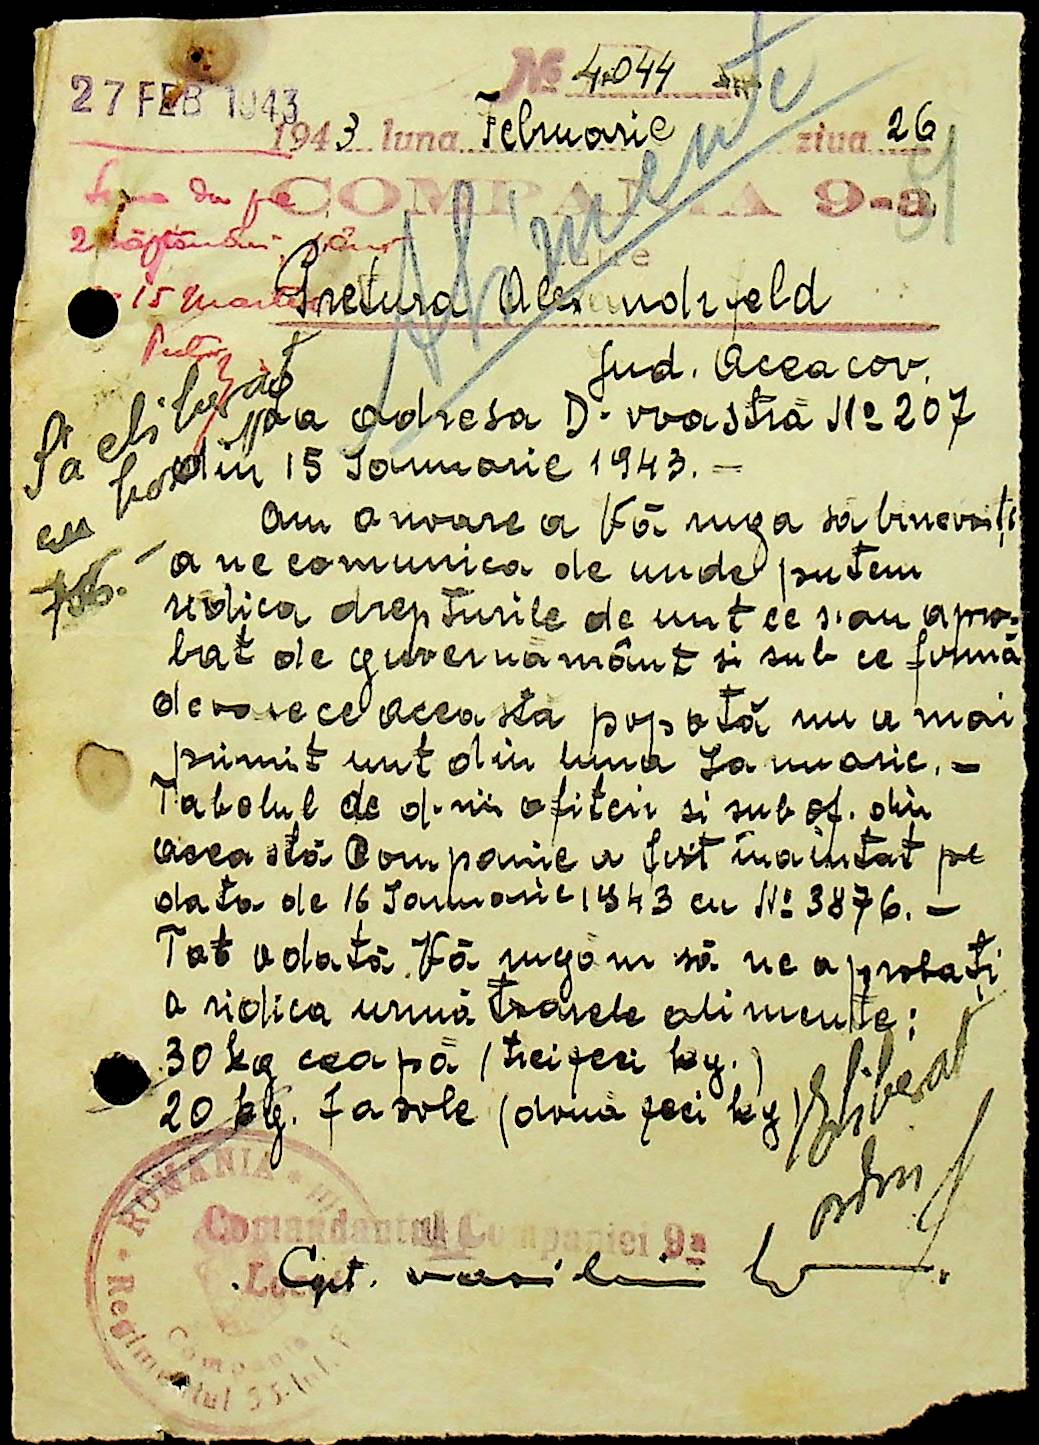 27 FEB 1943
Nº 4.044
1943 luna Februarie ziua 26
COMPANIA 9-a
Catre
Pretura Alexandrfeld
Jud. Aceacov.
Alimente
15 Martie
Sa eliberat
cu bon
La adresa D-vvastră Nº 207
din 15 Ianuarie 1943. =
Am onoare a Vă ruga să binevoiți
a ne comunica de unde putem
ridica drepturile de unt ce s-au apro-
bat de guvernământ si sub ce formă
deoarece aceasta popotă nu a mai
primit unt din luna Ianuarie. =
Tabelul de d-nii ofiteri si sub of. din
aceastā Companie a fost înaintat pe
data de 16 Ianuarie 1943 cu Nº 3876. —
Tot odată Vă rugăm să ne aprobați
a ridica următoarele alimente:
30 kg ceapă (treizeci kg.)
20 kg. Fasole (două zeci kg)
Eliberat
Comandantul Companiei 9a
Cpt. Vasiliu
ROMANIA
Regimentul
Compania